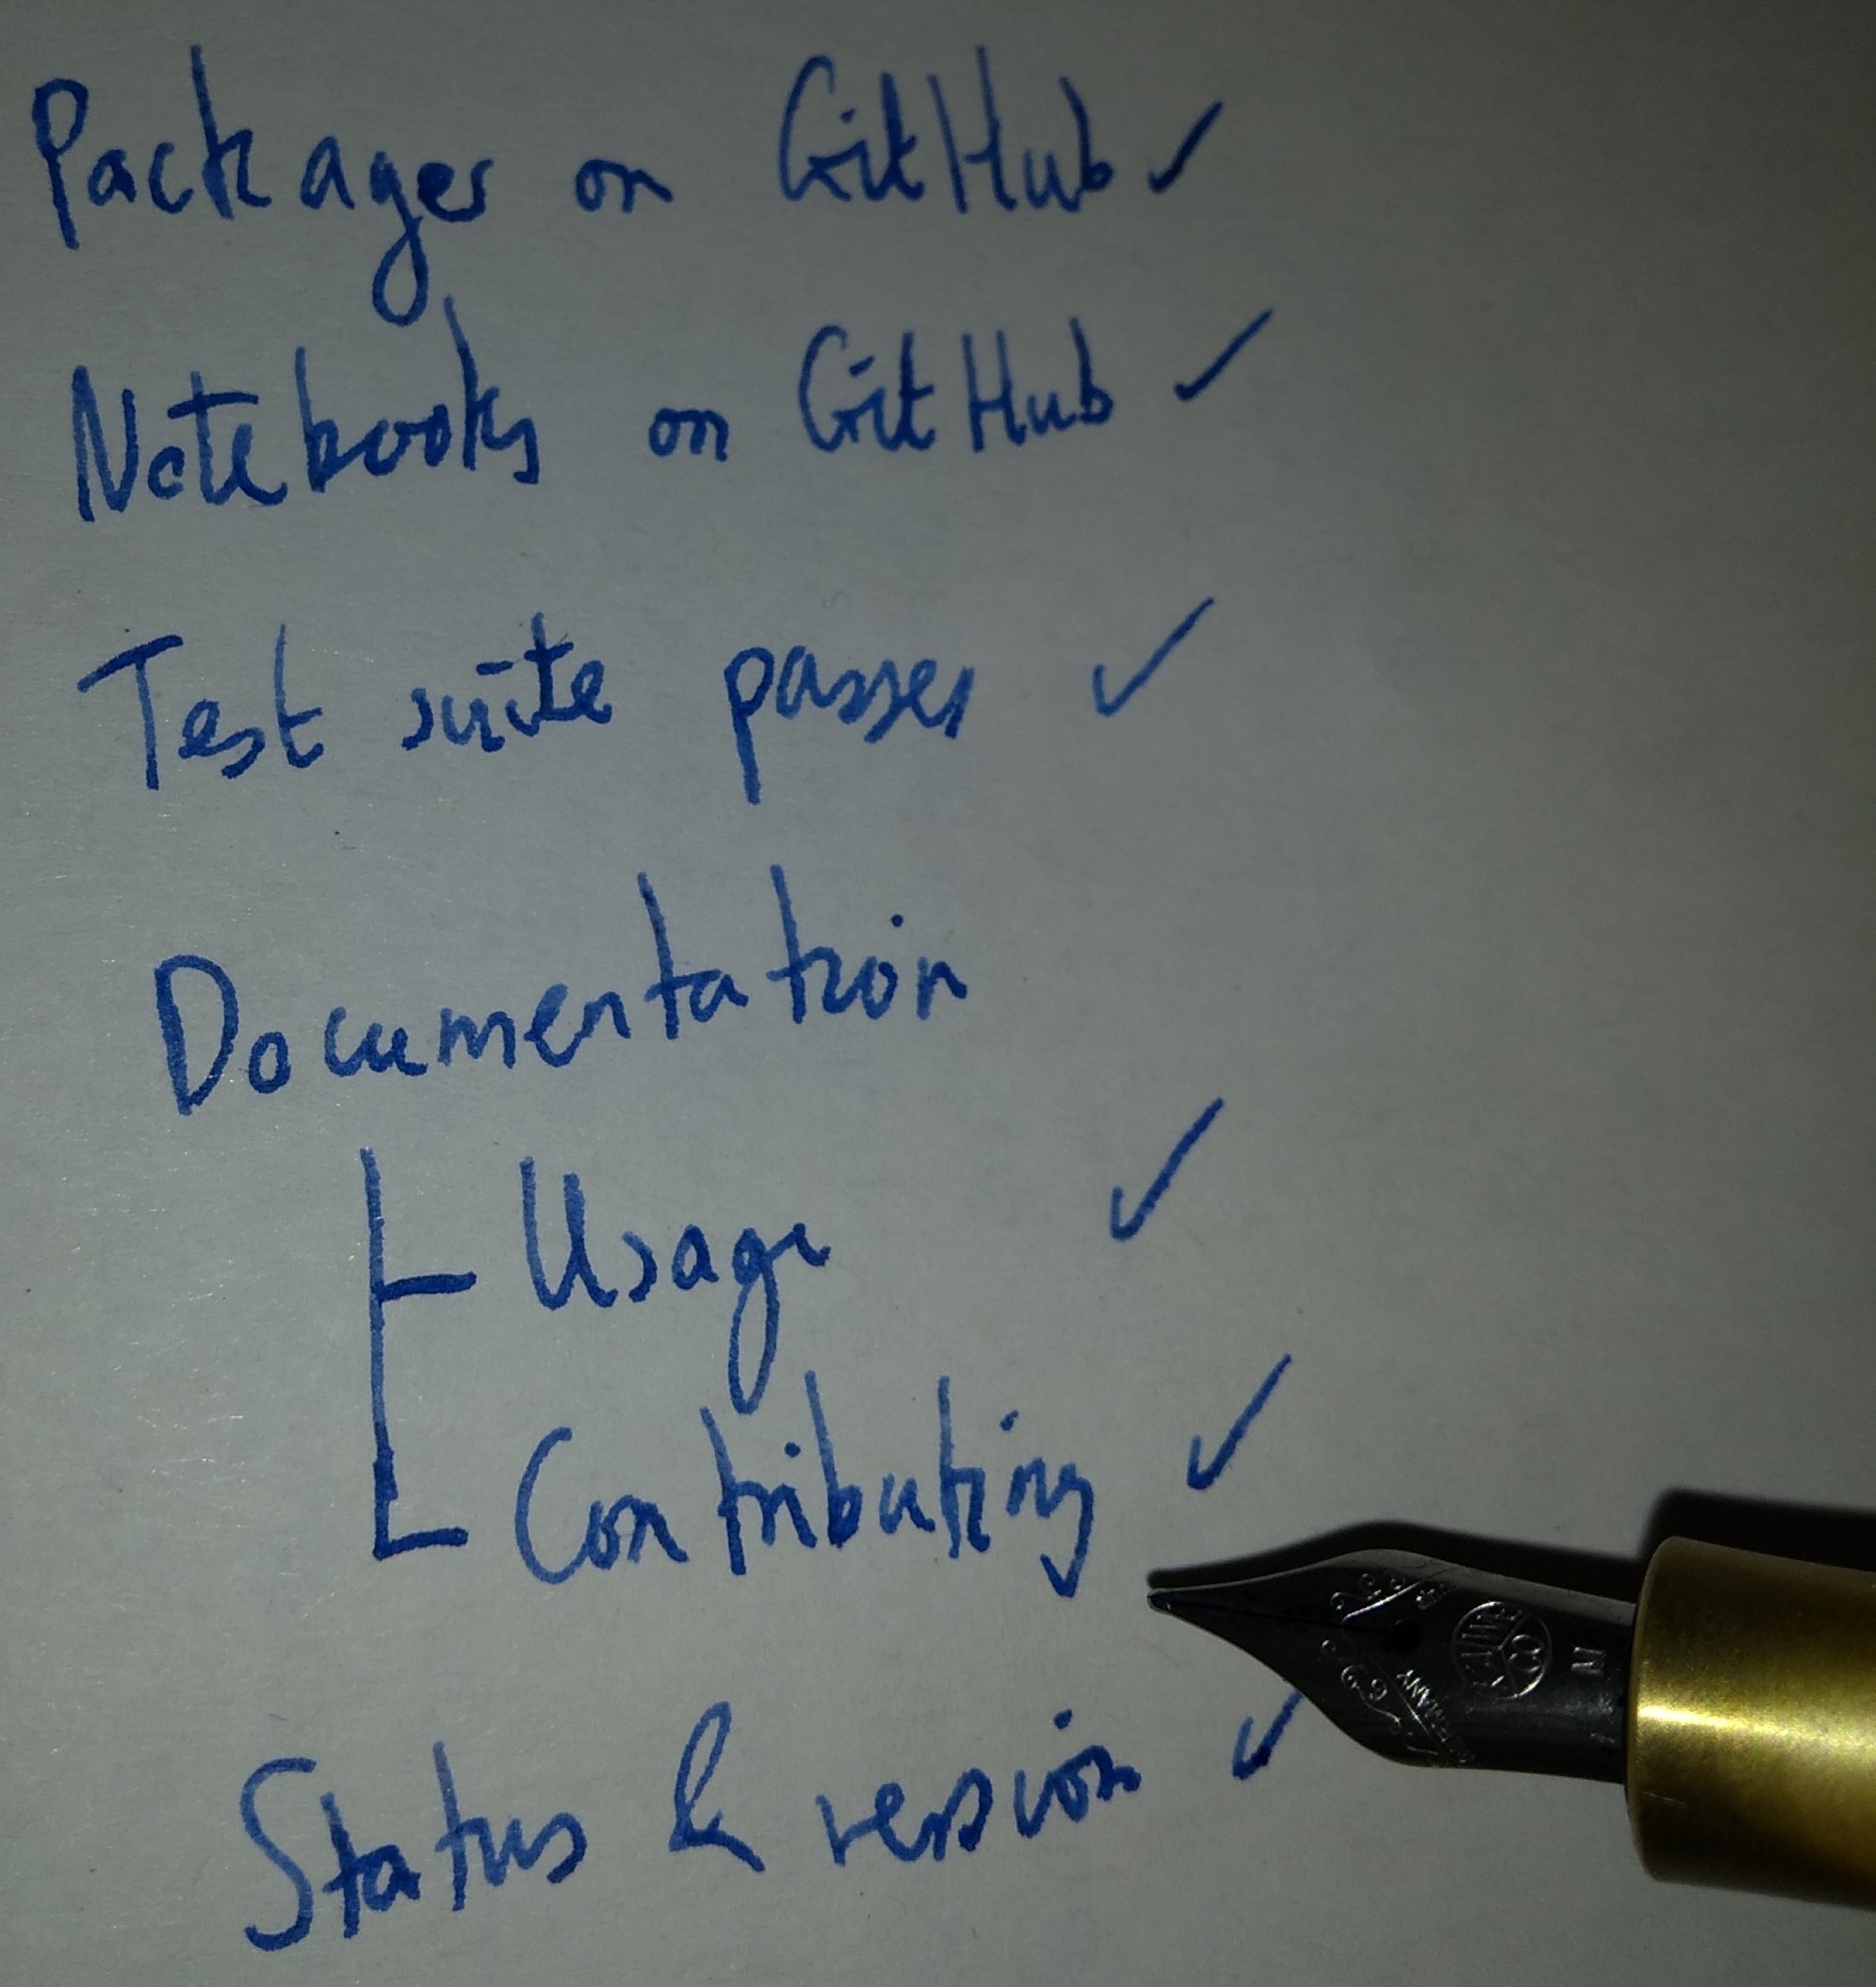 Packages on GitHub ✓
Notebooks on GitHub ✓
Test suite passes ✓
Documentation
Usage ✓
Contributing ✓
Status & version ✓
KAWECO
GERMANY
M